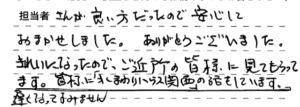 担当者さんが良い方だったので安心して
おまかせしました。ありがとうございました。
きれいになったので、ご近所の皆様に見てもらって
ます。皆様に「ひまわりハウス関西」の話をしています。
遅くなってすみません